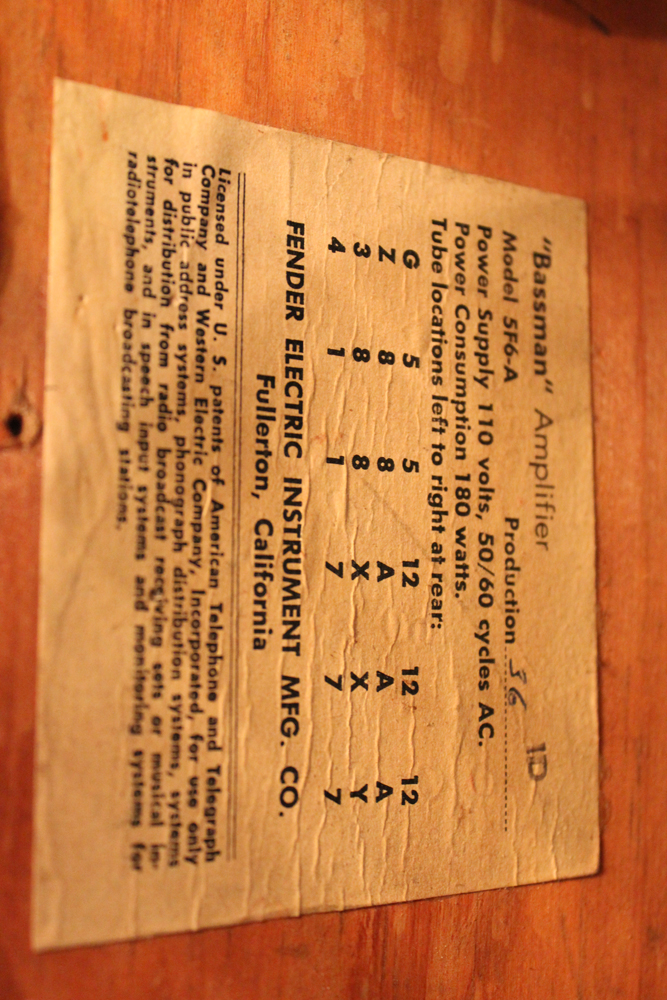 "Bassman" Amplifier ID
Model 5F6-A Production 36
Power Supply 110 volts, 50/60 cycles AC.
Power Consumption 180 watts.
Tube locations left to right at rear:
G 5 5 12 12 12
Z 8 8 A A A
3 8 8 X X Y
4 1 1 7 7 7
FENDER ELECTRIC INSTRUMENT MFG. CO.
Fullerton, California
Licensed under U. S. patents of American Telephone and Telegraph
Company and Western Electric Company, Incorporated, for use only
in public address systems, phonograph distribution systems, systems
for distribution from radio broadcast receiving sets or musical in-
struments, and in speech input systems and monitoring systems for
radiotelephone broadcasting stations.